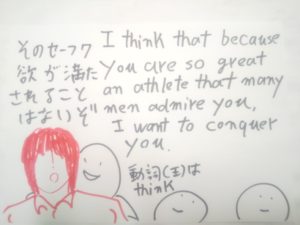 そのセーフク
欲が満た
されること
はないぞ
I think that because
you are so great
an athlete that many
men admire you,
I want to conquer
you.
動詞(主)は
think